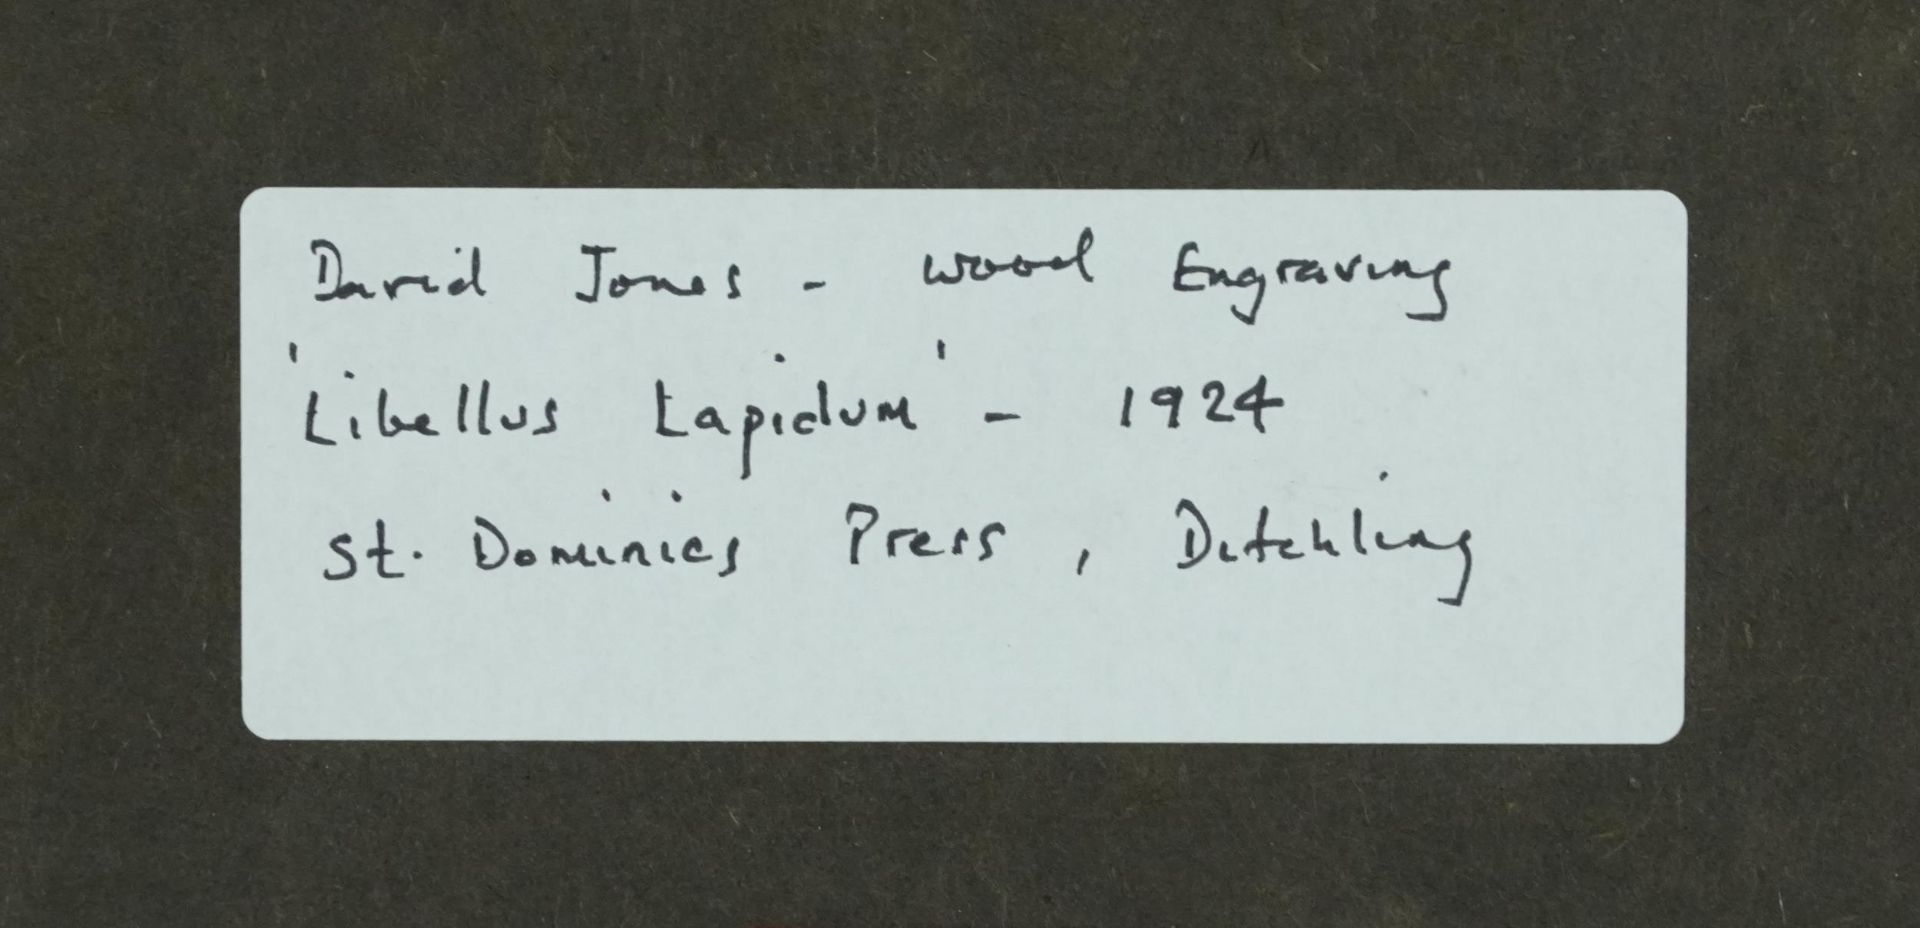 David Jones - Wood Engraving
'Libellus Lapidum' - 1924
St. Dominics Press, Ditchling